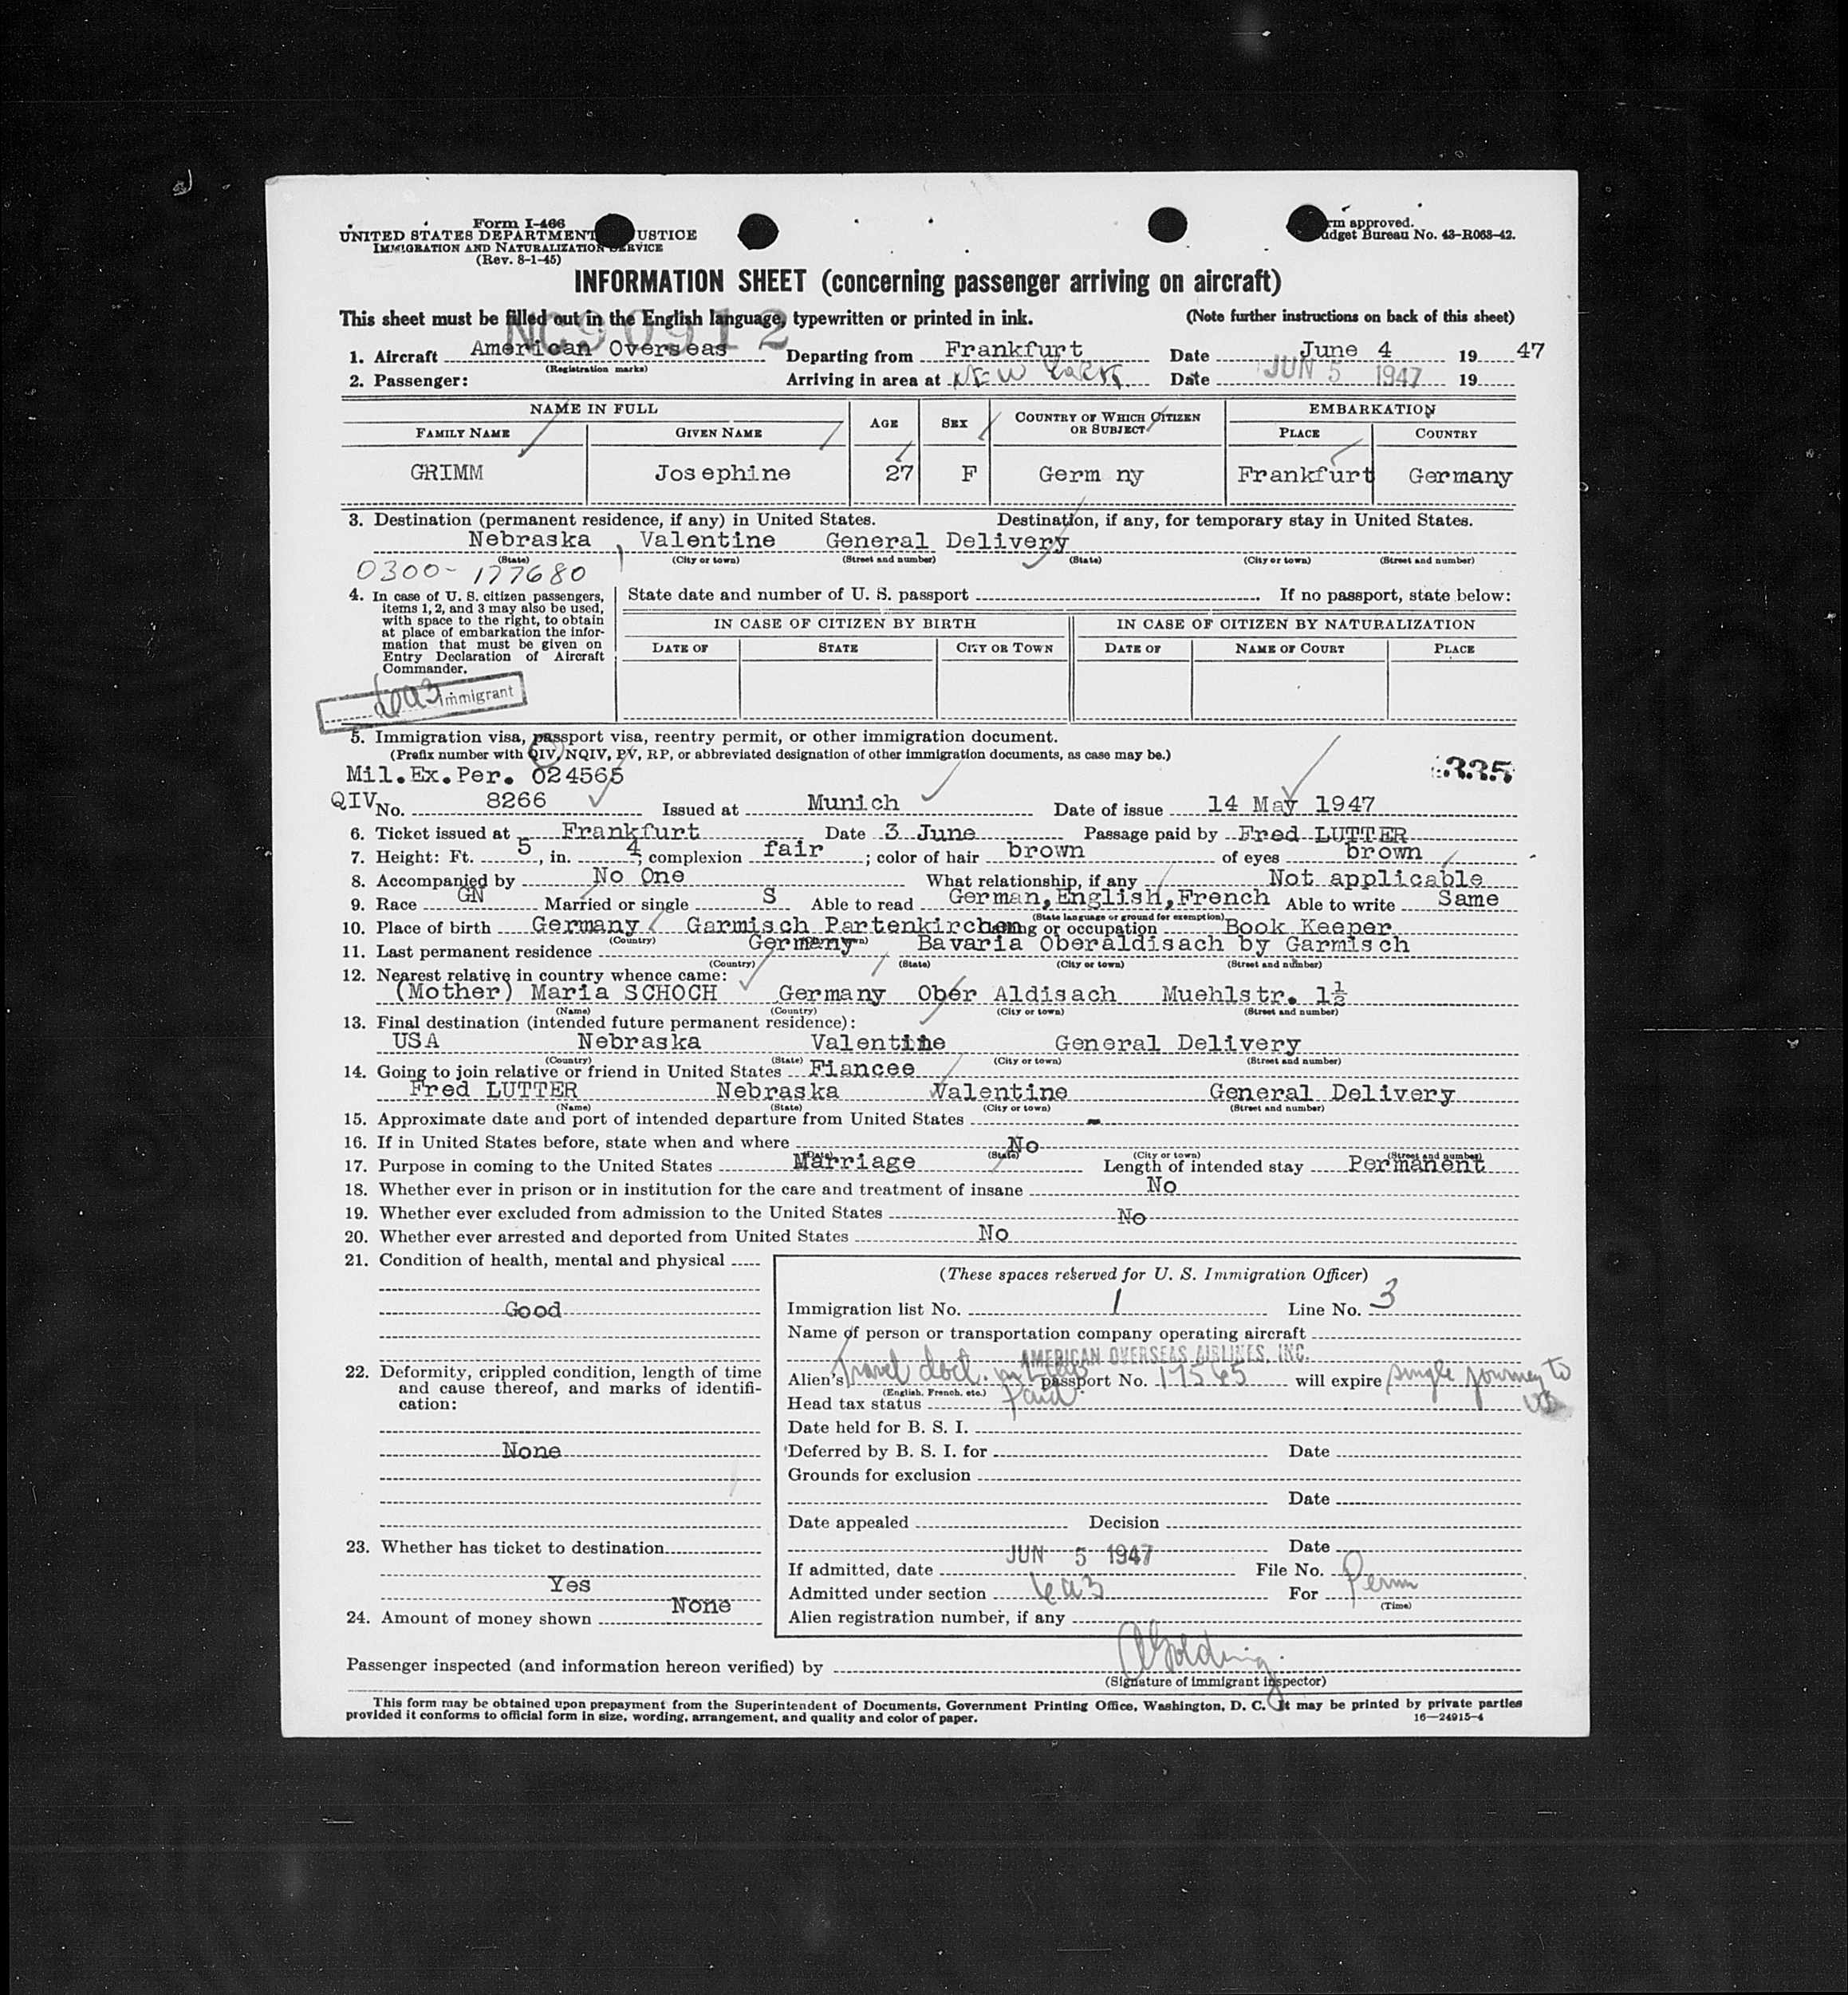 Form I-466
UNITED STATES DEPARTMENT USTICE
IMMIGRATION AND NATURALIZATION SERVICE
(Rev. 8-1-45)
rm approved.
udget Bureau No. 43-R063-42.
INFORMATION SHEET (concerning passenger arriving on aircraft)
This sheet must be filled out in the English language, typewritten or printed in ink. (Note further instructions on back of this sheet)
NC90912
1. Aircraft American Overseas Departing from Frankfurt Date June 4 19 47
(Registration marks)
2. Passenger: Arriving in area at NEW YORK Date JUN 5 1947 19
NAME IN FULL AGE SEX COUNTRY OF WHICH CITIZEN OR SUBJECT EMBARKATION
FAMILY NAME GIVEN NAME PLACE COUNTRY
GRIMM Josephine 27 F Germ ny Frankfurt Germany
3. Destination (permanent residence, if any) in United States. Destination, if any, for temporary stay in United States.
Nebraska Valentine General Delivery
(State) (City or town) (Street and number) (State) (City or town) (Street and number)
0300-177680
4. In case of U. S. citizen passengers, items 1, 2, and 3 may also be used, with space to the right, to obtain at place of embarkation the information that must be given on Entry Declaration of Aircraft Commander.
State date and number of U. S. passport If no passport, state below:
IN CASE OF CITIZEN BY BIRTH IN CASE OF CITIZEN BY NATURALIZATION
DATE OF STATE CITY OR TOWN DATE OF NAME OF COURT PLACE
6a3 immigrant
5. Immigration visa, passport visa, reentry permit, or other immigration document.
(Prefix number with QIV, NQIV, PV, RP, or abbreviated designation of other immigration documents, as case may be.)
Mil.Ex.Per. 024565 335
QIV No. 8266 Issued at Munich Date of issue 14 May 1947
6. Ticket issued at Frankfurt Date 3 June Passage paid by Fred LUTTER
7. Height: Ft. 5, in. 4; complexion fair; color of hair brown of eyes brown
8. Accompanied by No One What relationship, if any Not applicable
9. Race GN Married or single S Able to read German,English,French Able to write Same
(State language or ground for exemption)
10. Place of birth Germany Garmisch Partenkirchen ing or occupation Book Keeper
(Country)
11. Last permanent residence Germany Bavaria Oberaldisach by Garmisch
(Country) (State) (City or town) (Street and number)
12. Nearest relative in country whence came:
(Mother) Maria SCHOCH Germany Ober Aldisach Muehlstr. 1½
(Name) (Country) (City or town) (Street and number)
13. Final destination (intended future permanent residence):
USA Nebraska Valentine General Delivery
(Country) (State) (City or town) (Street and number)
14. Going to join relative or friend in United States Fiancee
Fred LUTTER Nebraska Valentine General Delivery
(Name) (State) (City or town) (Street and number)
15. Approximate date and port of intended departure from United States -
16. If in United States before, state when and where No
(Date) (State) (City or town) (Street and number)
17. Purpose in coming to the United States Marriage Length of intended stay Permanent
18. Whether ever in prison or in institution for the care and treatment of insane No
19. Whether ever excluded from admission to the United States No
20. Whether ever arrested and deported from United States No
21. Condition of health, mental and physical
Good
22. Deformity, crippled condition, length of time and cause thereof, and marks of identification:
None
23. Whether has ticket to destination
Yes
24. Amount of money shown None
(These spaces reserved for U. S. Immigration Officer)
Immigration list No. 1 Line No. 3
Name of person or transportation company operating aircraft
AMERICAN OVERSEAS AIRLINES, INC.
Alien's Travel doct. in Lieu passport No. 17565 will expire single journey to US
(English, French, etc.)
Head tax status Paid
Date held for B. S. I.
Deferred by B. S. I. for Date
Grounds for exclusion
Date
Date appealed Decision
Date
If admitted, date JUN 5 1947 File No.
Admitted under section 6a3 For Perm
(Time)
Alien registration number, if any
Passenger inspected (and information hereon verified) by AGolding
(Signature of immigrant inspector)
This form may be obtained upon prepayment from the Superintendent of Documents, Government Printing Office, Washington, D. C. It may be printed by private parties
provided it conforms to official form in size, wording, arrangement, and quality and color of paper. 16—24915-4